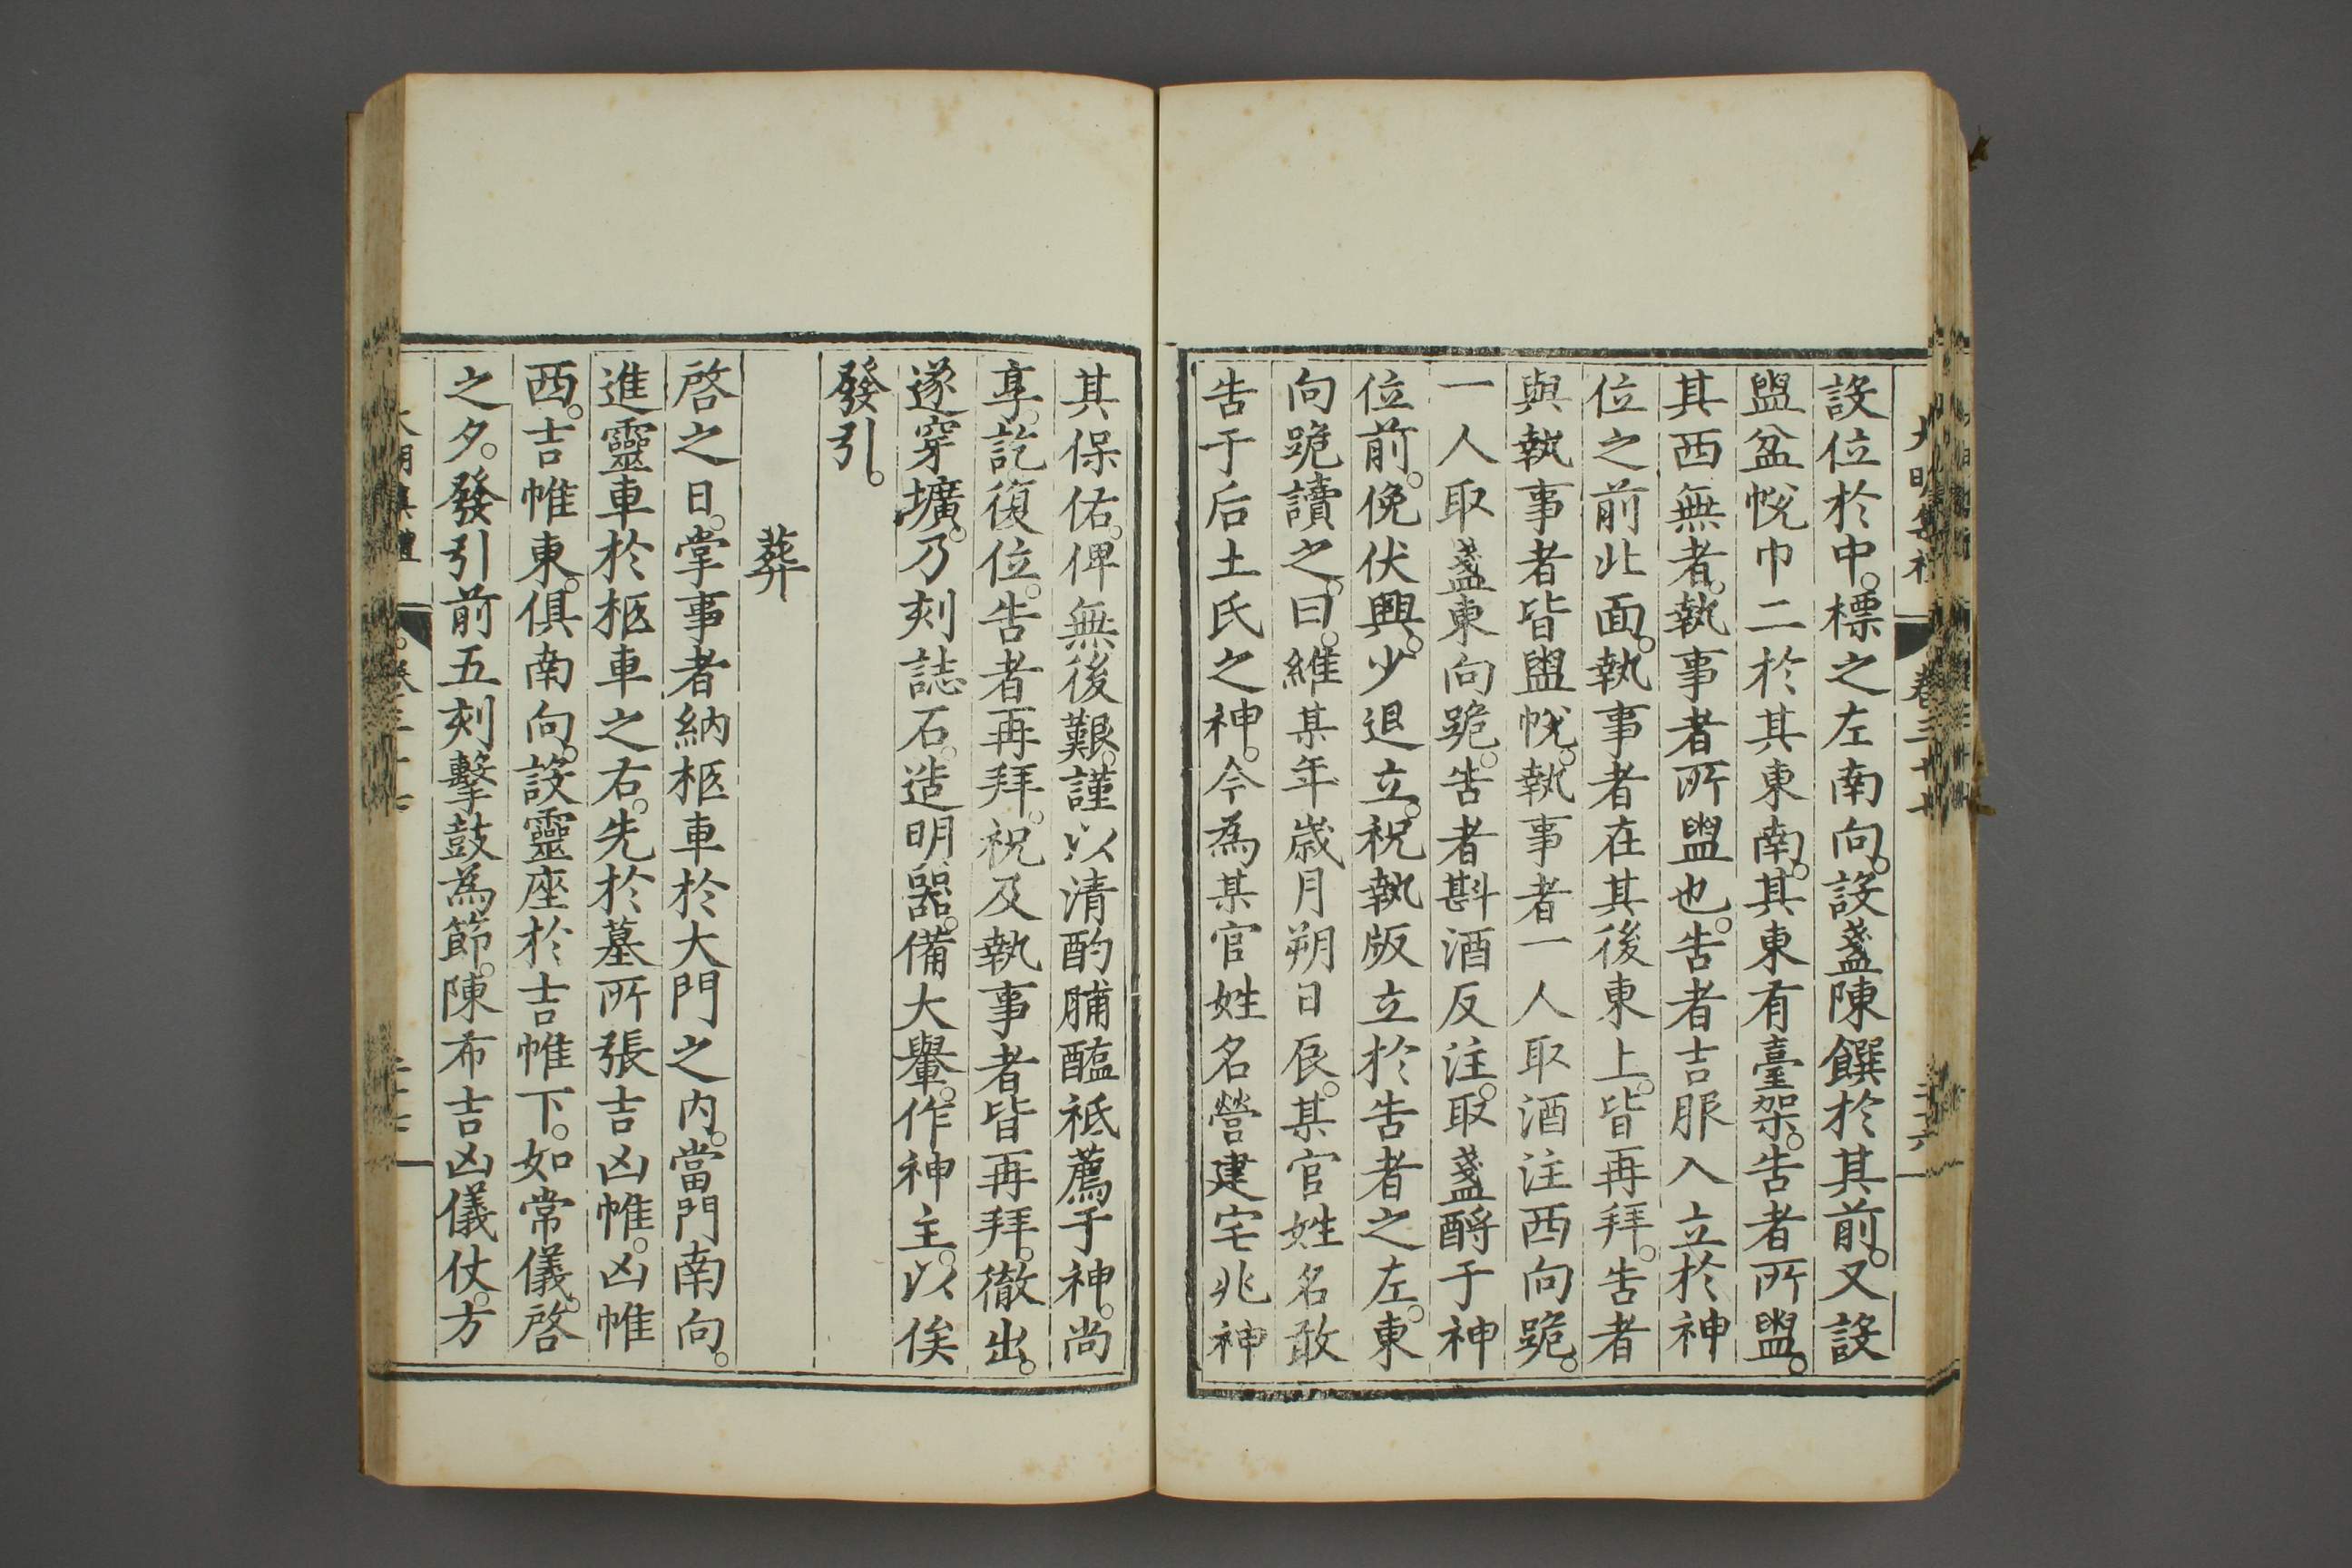 設位於中。標之左南向。設盞陳饌於其前。又設
盥盆帨巾二於其東南。其東有臺架。告者所盥。
其西無者。執事者所盥也。告者吉服入立於神
位之前北面。執事者在其後東上。皆再拜。告者
與執事者皆盥帨。執事者一人取酒注西向跪。
一人取盞東向跪。告者斟酒反注。取盞酹于神
位前。俛伏興。少退立。祝執版立於告者之左。東
向跪讀之。曰。維某年歲月朔日辰。某官姓名敢
告于后土氏之神。今為某官姓名營建宅兆神
其保佑。俾無後艱。謹以清酌脯醢祗薦于神。尚
享。訖復位。告者再拜。祝及執事者皆再拜。徹出。
遂穿壙。乃刻誌石。造明器。備大轝。作神主。以俟
發引。
葬
啓之日。掌事者納柩車於大門之內。當門南向。
進靈車於柩車之右。先於墓所張吉凶帷。凶帷
西。吉帷東。俱南向。設靈座於吉帷下。如常儀。啓
之夕。發引前五刻擊鼓為節。陳布吉凶儀仗。方